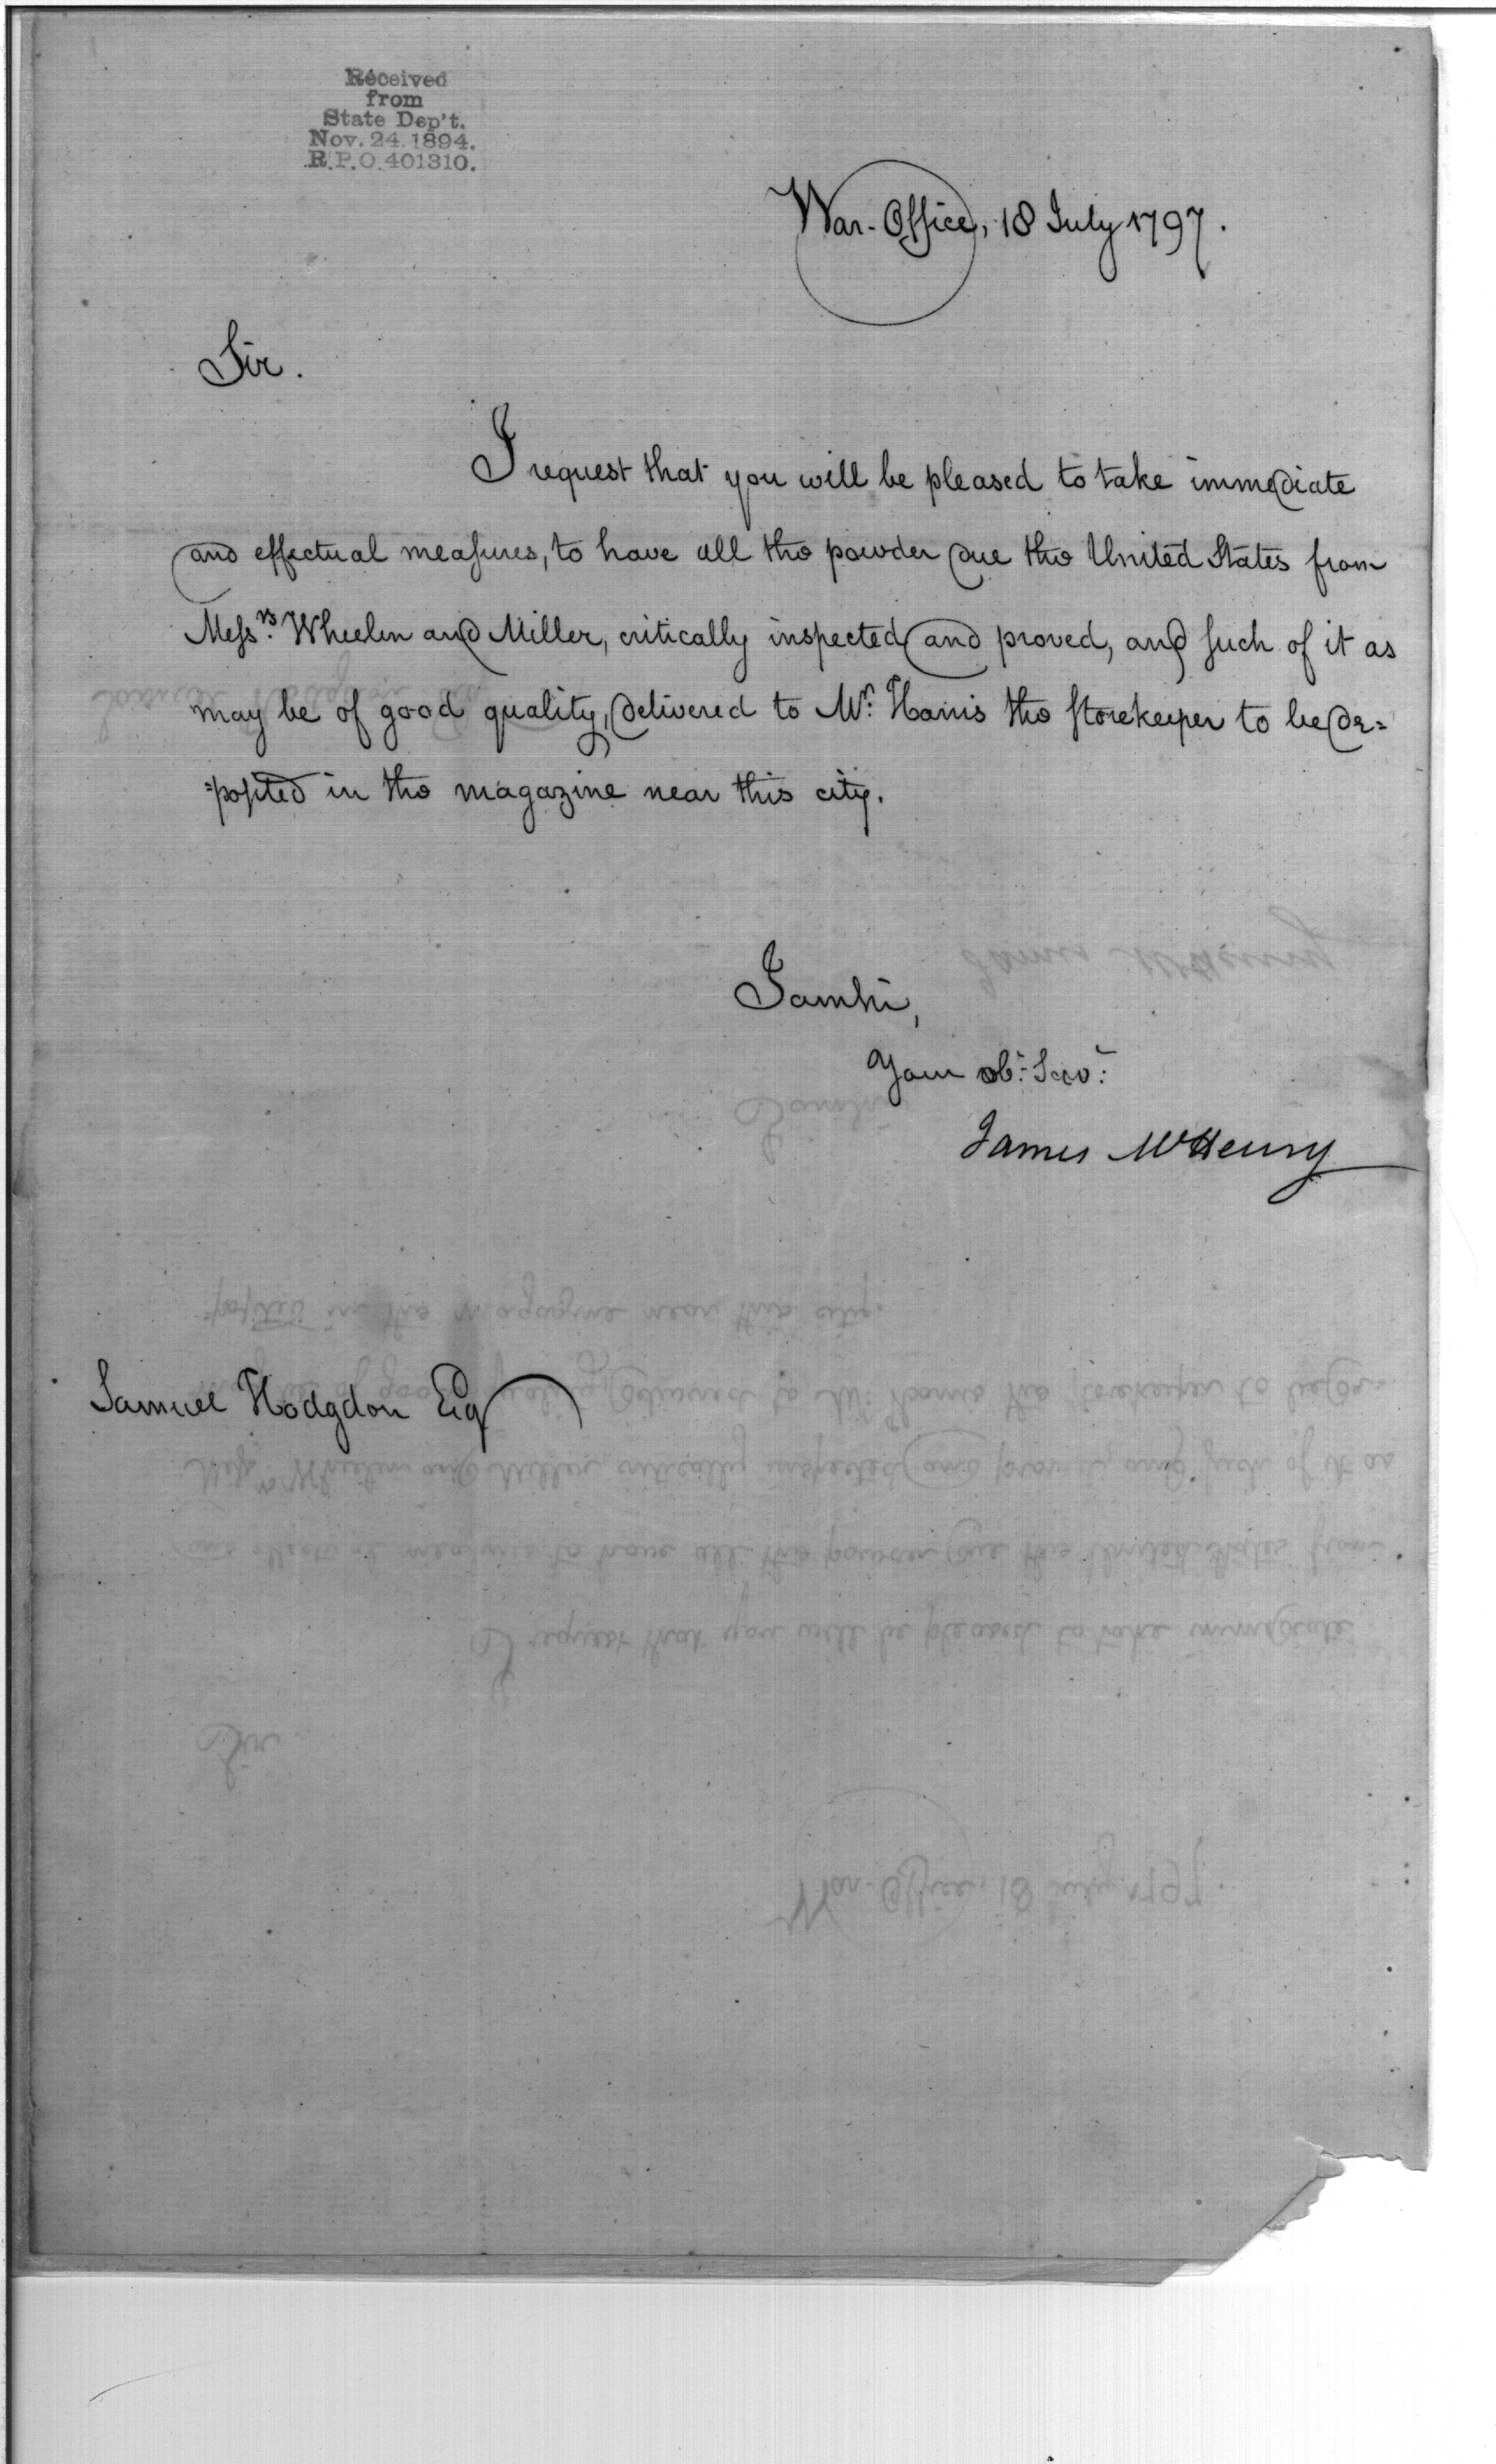 Received
from
State Dep't.
Nov. 24. 1894.
R.P.O. 401310.
War-Office, 18 July 1797.
Sir.
I request that you will be pleased to take immediate
and effectual measures, to have all the powder due the United States from
Mess.rs Wheelen and Miller, critically inspected and proved, and such of it as
may be of good quality, delivered to Mr. Harris the storekeeper to be de=
=posited in the magazine near this city.
I am Sir,
Your ob.t Serv.t
James McHenry
Samuel Hodgdon Esq